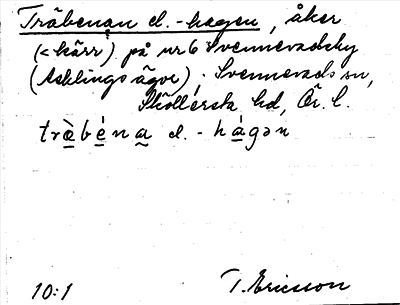 Träbenan el. -hagen, åker
(< kärr) på nr 6 Svennevadsby
(Äsklings ägor). Svennevads sn,
Sköllersta hd, Ör. l.
trä̀béna el. -hágən
10:1 T. Ericsson